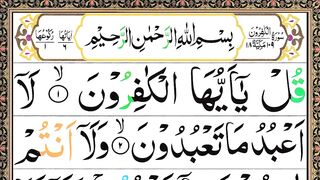 سُوْرَةُ الْكٰفِرُوْنَ
١٠٩ مَكِّيَّةٌ ١٨
بِسْمِ اللّٰهِ الرَّحْمٰنِ الرَّحِيْمِ
اٰيَاتُهَا ٦ رُكُوْعُهَا ١
قُلْ يٰۤاَيُّهَا الْكٰفِرُوْنَ ۙ﴿۱﴾ لَاۤ
اَعْبُدُ مَا تَعْبُدُوْنَ ۙ﴿۲﴾ وَلَاۤ اَنْتُمْ